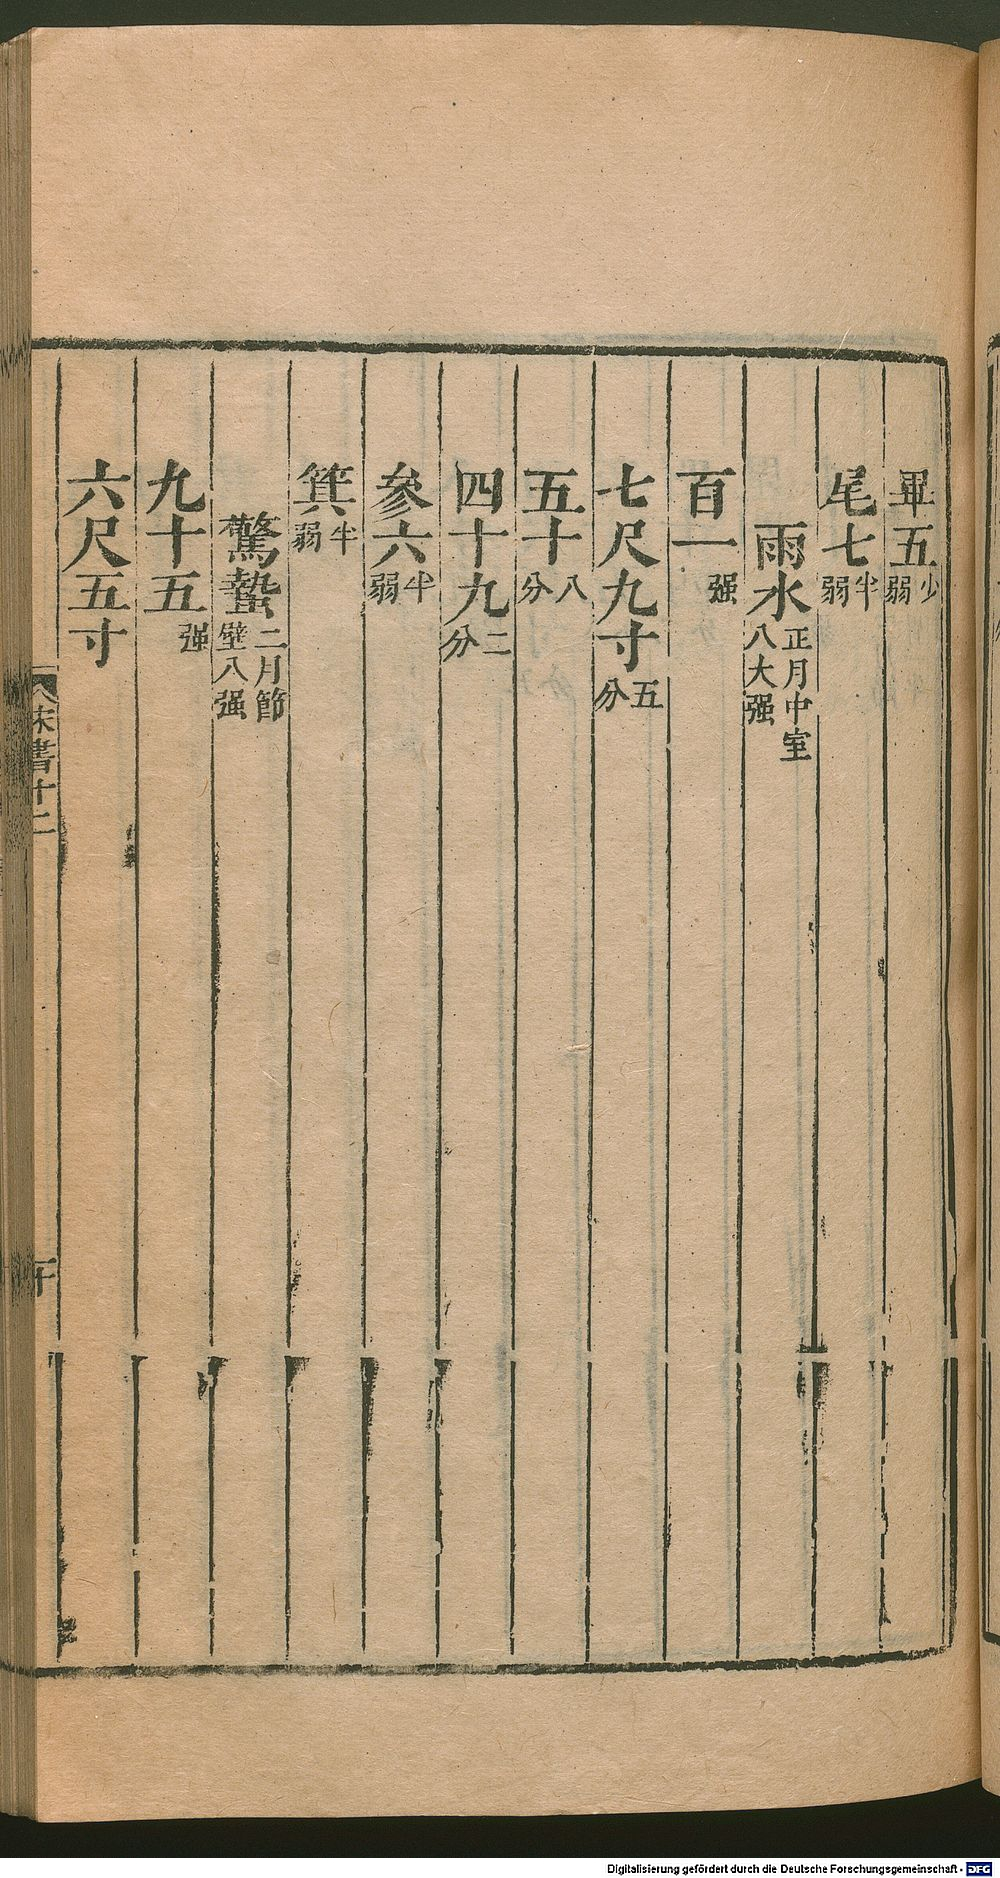 畢五少弱
尾七半弱
雨水正月中室八大强
百一强
七尺九寸五分
五十八分
四十九二分
參六半弱
箕半弱
驚蟄二月節壁八强
九十五强
六尺五寸
宋書十二
Digitalisierung gefördert durch die Deutsche Forschungsgemeinschaft - DFG